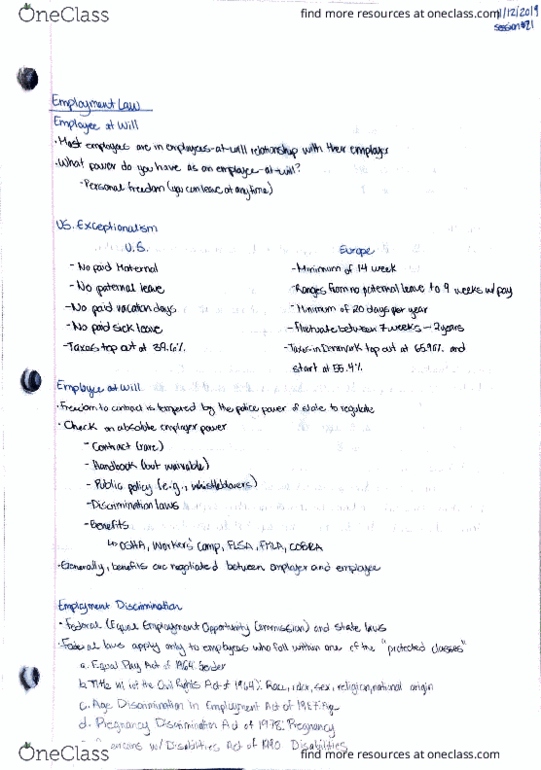 OneClass
find more resources at oneclass.com
11/12/2019
session #21
Employment Law
Employee at Will
· Most employees are in employees-at-will relationship with their employer
· What power do you have as an employee-at-will?
- Personal freedom (you can leave at any time)
US. Exceptionalism
U.S.
Europe
- No paid Maternal
- Minimum of 14 week
- No paternal leave
- Ranges from no paternal leave to 9 weeks w/ pay
- No paid vacation days
- Minimum of 20 days per year
- No paid sick leave
- Fluctuate between 7 weeks - 2 years
- Taxes top out at 39.6%
- Taxes in Denmark top out at and
start at 55.4%
Employee at Will
· Freedom to contract is tempered by the police power of state to regulate
· Check on absolute employer power
- Contract (rare)
- Handbook (but waivable)
- Public policy (e.g., whistleblowers)
- Discrimination laws
- Benefits
↳ OSHA, Workers' Comp, FLSA, FMLA, COBRA
· Generally, benefits are negotiated between employer and employee
Employment Discrimination
· Federal (Equal Employment Opportunity Commission) and state laws
· Federal laws apply only to employees who fall within one of the "protected classes"
a. Equal Pay Act of 1964: Gender
b. Title VII of the Civil Rights Act of 1964: Race, color, sex, religion, national origin
c. Age Discrimination in Employment Act of 1967: Age
d. Pregnancy Discrimination Act of 1978: Pregnancy
w/ Disabilities Act of 1990 Disabilities
OneClass
find more resources at oneclass.com